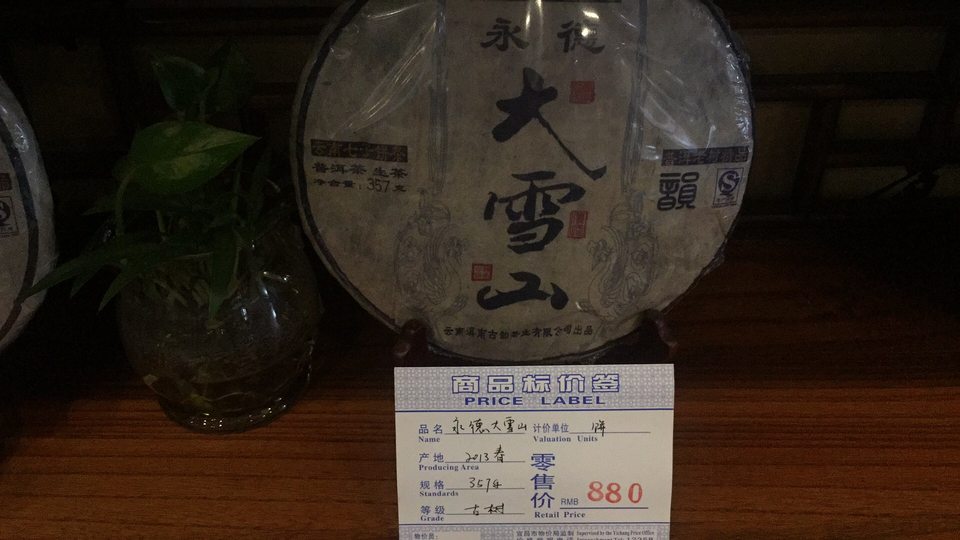 永德
大雪山
普洱茶 生茶
净含量:357克
韻
商品标价签
PRICE LABEL
品名 永德大雪山 计价单位 饼
Name Valuation Units
产地 2013春
Producing Area
规格 357克
Standards
零售价 RMB 880
Retail Price
等级 古树
Grade
物价员:
宜昌市物价局监制 Supervised by the Yichang Price Office